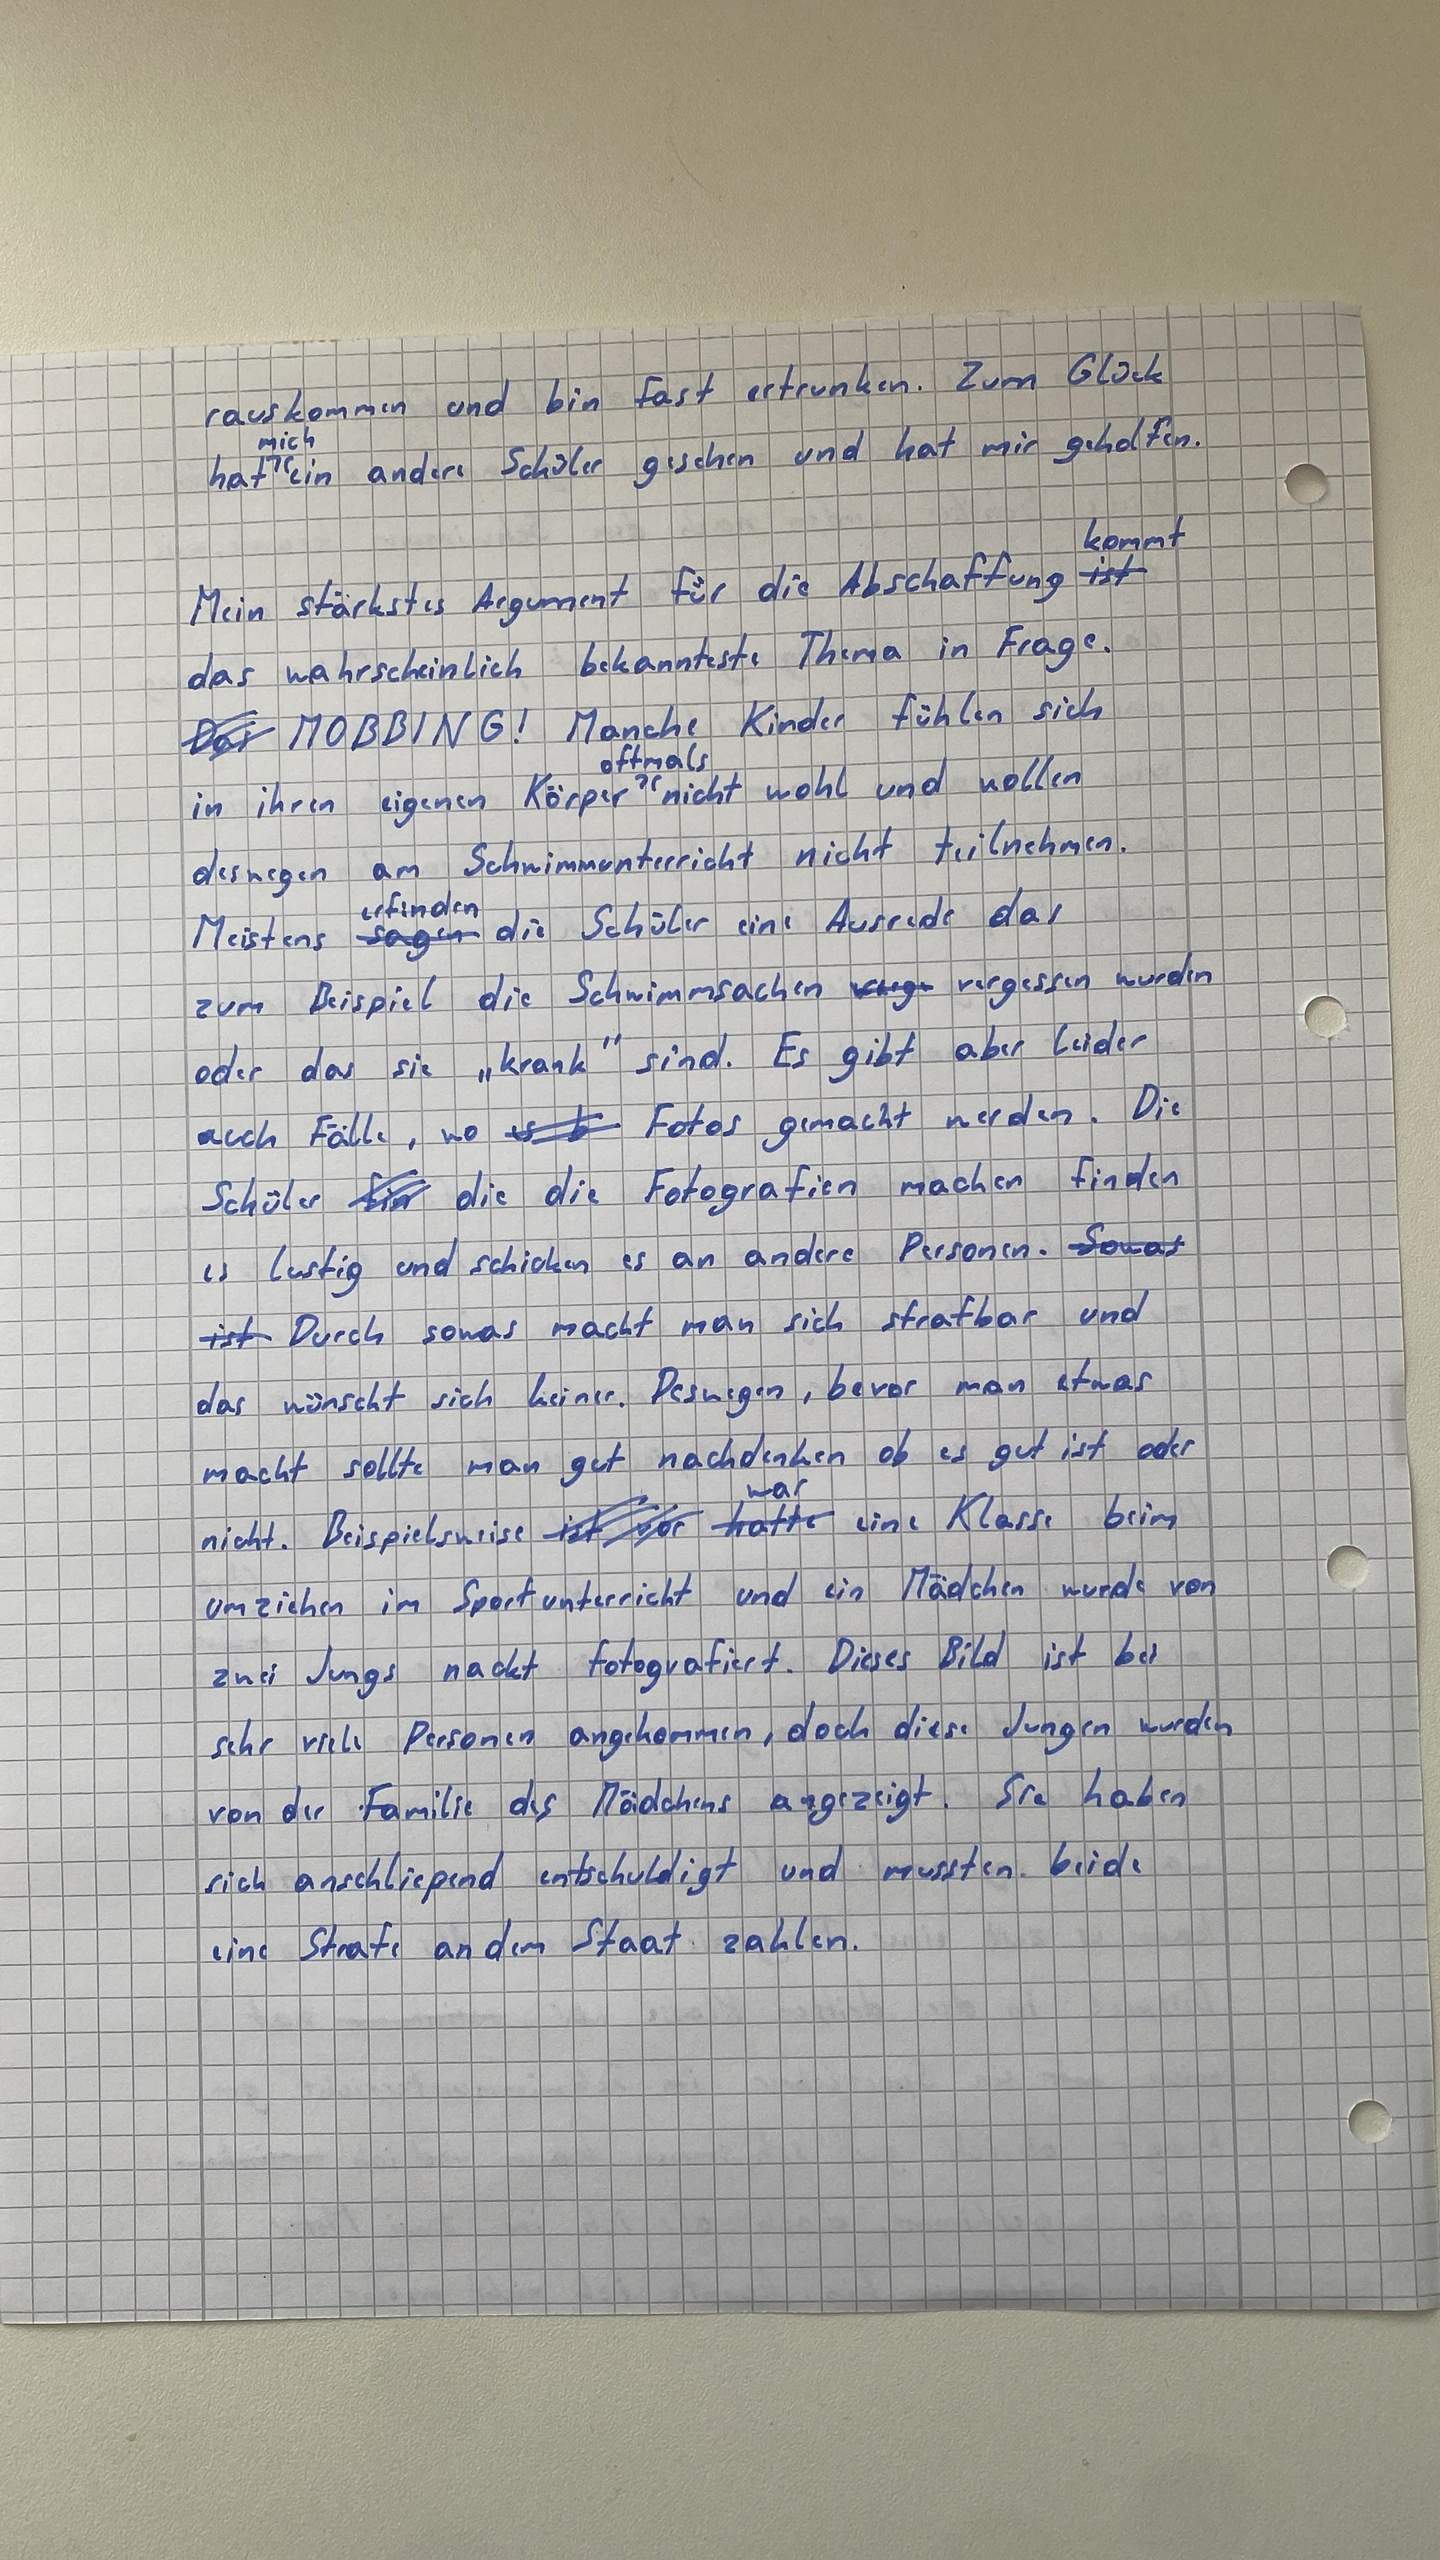 rauskommen und bin fast ertrunken. Zum Glück
mich
hat ein andere Schüler gesehen und hat mir geholfen.
kommt
Mein stärkstes Argument für die Abschaffung ist
das wahrscheinlich bekannteste Thema in Frage.
Das MOBBING! Manche Kinder fühlen sich
oftmals
in ihren eigenen Körper nicht wohl und wollen
deswegen am Schwimmunterricht nicht teilnehmen.
erfinden
Meistens sagen die Schüler eine Ausrede das
zum Beispiel die Schwimmsachen vergessen wurden
oder das sie „krank" sind. Es gibt aber leider
auch Fälle, wo Fotos gemacht werden. Die
Schüler die die Fotografien machen finden
es lustig und schicken es an andere Personen. Sowas
ist Durch sowas macht man sich strafbar und
das wünscht sich keiner. Deswegen, bevor man etwas
macht sollte man gut nachdenken ob es gut ist oder
war
nicht. Beispielsweise ist vor hatte eine Klasse beim
umziehen im Sportunterricht und ein Mädchen wurde von
zwei Jungs nackt fotografiert. Dieses Bild ist bei
sehr viele Personen angekommen, doch diese Jungen wurden
von der Familie des Mädchens angezeigt. Sie haben
sich anschließend entschuldigt und mussten beide
eine Strafe an dem Staat zahlen.